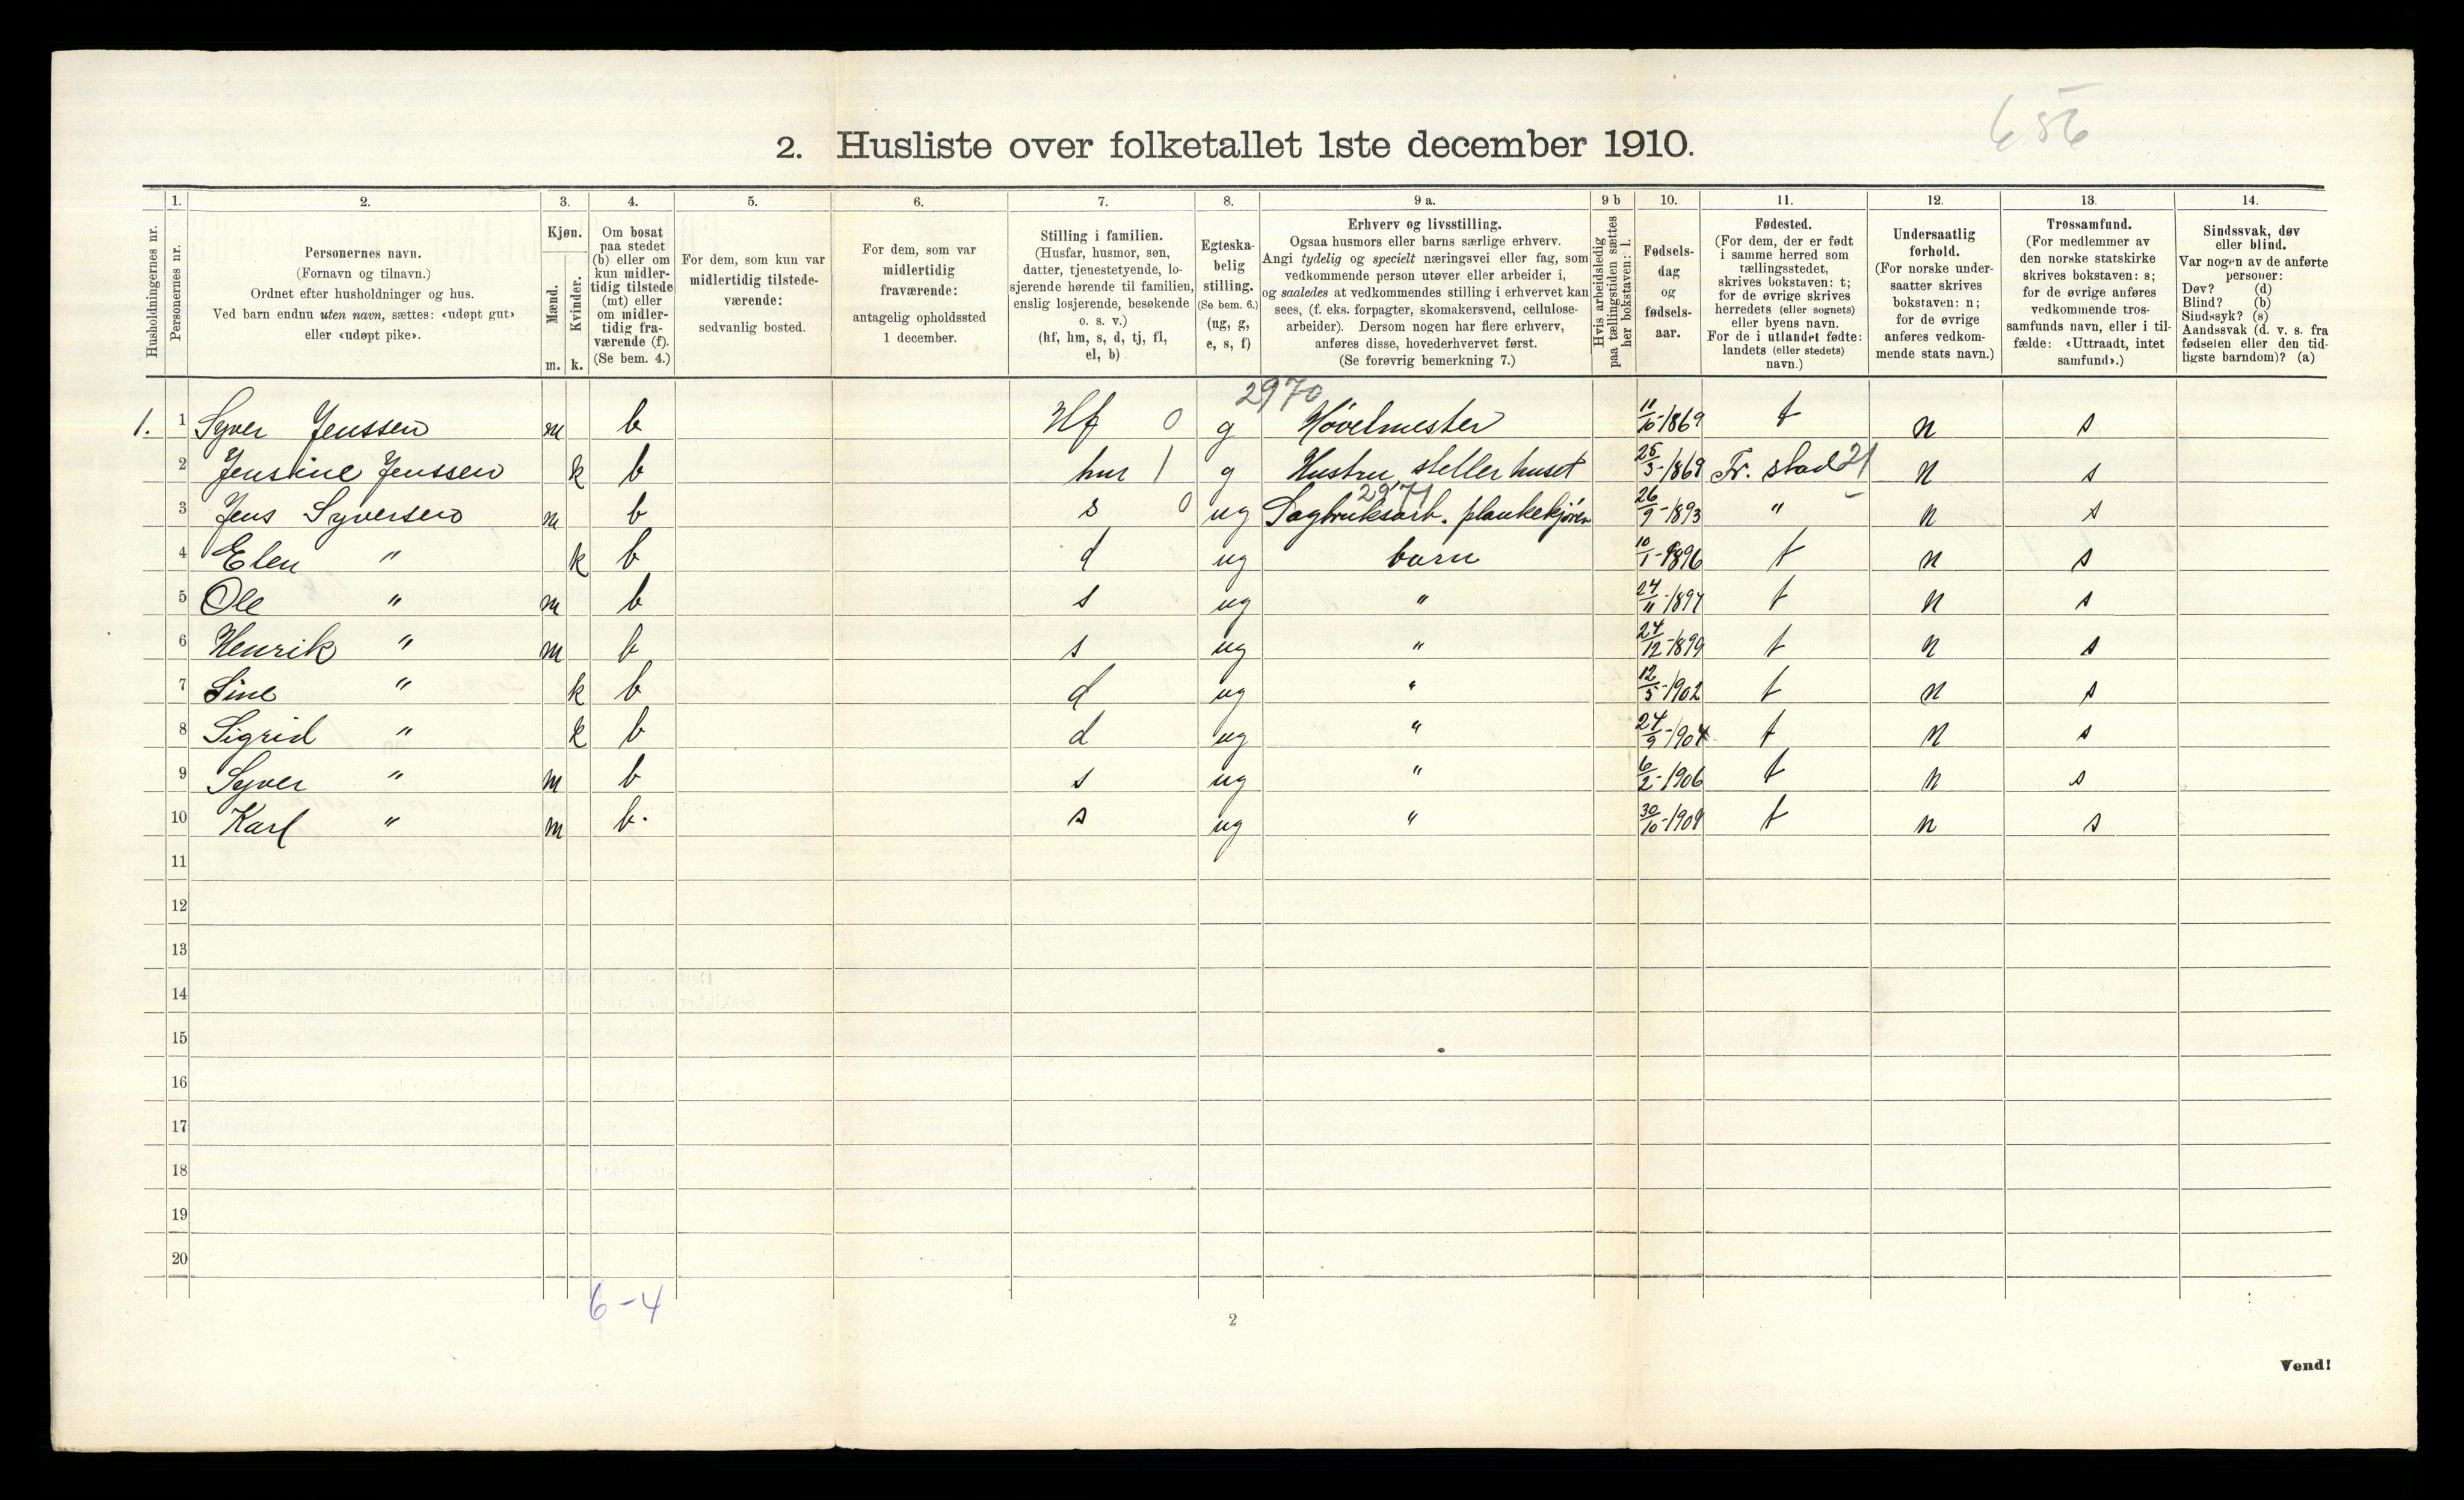 656
2. Husliste over folketallet 1ste december 1910.
Husholdningernes nr.
1. Personernes nr.
2. Personernes navn.
(Fornavn og tilnavn.)
Ordnet efter husholdninger og hus.
Ved barn endnu uten navn, sættes: «udøpt gut»
eller «udøpt pike».
3. Kjøn.
Mænd. m.
Kvinder. k.
4. Om bosat
paa stedet
(b) eller om
kun midler-
tidig tilstede
(mt) eller
om midler-
tidig fra-
værende (f).
(Se bem. 4.)
5. For dem, som kun var
midlertidig tilstede-
værende:
sedvanlig bosted.
6. For dem, som var
midlertidig
fraværende:
antagelig opholdssted
1 december.
7. Stilling i familien.
(Husfar, husmor, søn,
datter, tjenestetyende, lo-
sjerende hørende til familien,
enslig losjerende, besøkende
o. s. v.)
(hf, hm, s, d, tj, fl,
el, b)
8. Egteska-
belig
stilling.
(Se bem. 6.)
(ug, g,
e, s, f)
9 a. Erhverv og livsstilling.
Ogsaa husmors eller barns særlige erhverv.
Angi tydelig og specielt næringsvei eller fag, som
vedkommende person utøver eller arbeider i,
og saaledes at vedkommendes stilling i erhvervet kan
sees, (f. eks. forpagter, skomakersvend, cellulose-
arbeider). Dersom nogen har flere erhverv,
anføres disse, hovederhvervet først.
(Se forøvrig bemerkning 7.)
9 b Hvis arbeidsledig
paa tællingstiden sættes
her bokstaven: l.
10. Fødsels-
dag
og
fødsels-
aar.
11. Fødested.
(For dem, der er født
i samme herred som
tællingsstedet,
skrives bokstaven: t;
for de øvrige skrives
herredets (eller sognets)
eller byens navn.
For de i utlandet fødte:
landets (eller stedets)
navn.)
12. Undersaatlig
forhold.
(For norske under-
saatter skrives
bokstaven: n;
for de øvrige
anføres vedkom-
mende stats navn.)
13. Trossamfund.
(For medlemmer av
den norske statskirke
skrives bokstaven: s;
for de øvrige anføres
vedkommende tros-
samfunds navn, eller i til-
fælde: «Uttraadt, intet
samfund».)
14. Sindssvak, døv
eller blind.
Var nogen av de anførte
personer:
Døv? (d)
Blind? (b)
Sindssyk? (s)
Aandssvak (d. v. s. fra
fødselen eller den tid-
ligste barndom)? (a)
2970
1. 1 Syver Jenssen m b Hf 0 g Høvelmester 11/10-1869 t n s
2 Jensine Jenssen k b hm 1 g Hustru, steller huset 25/3-1869 Fr. stad 21 n s
2971
3 Jens Syversen m b s 0 ug Sagbruksarb. plankekjører 26/9-1893 " n s
4 Elen " k b d ug barn 10/1-1896 t n s
5 Ole " m b s ug " 24/11-1897 t n s
6 Henrik " m b s ug " 24/12-1899 t n s
7 Sine " k b d ug " 12/5-1902 t n s
8 Sigrid " k b d ug " 24/9-1904 t n s
9 Syver " m b s ug " 6/2-1906 t n s
10 Karl " m b. s ug " 30/10-1909 t n s
11
12
13
14
15
16
17
18
19
20
6-4
2
Vend!